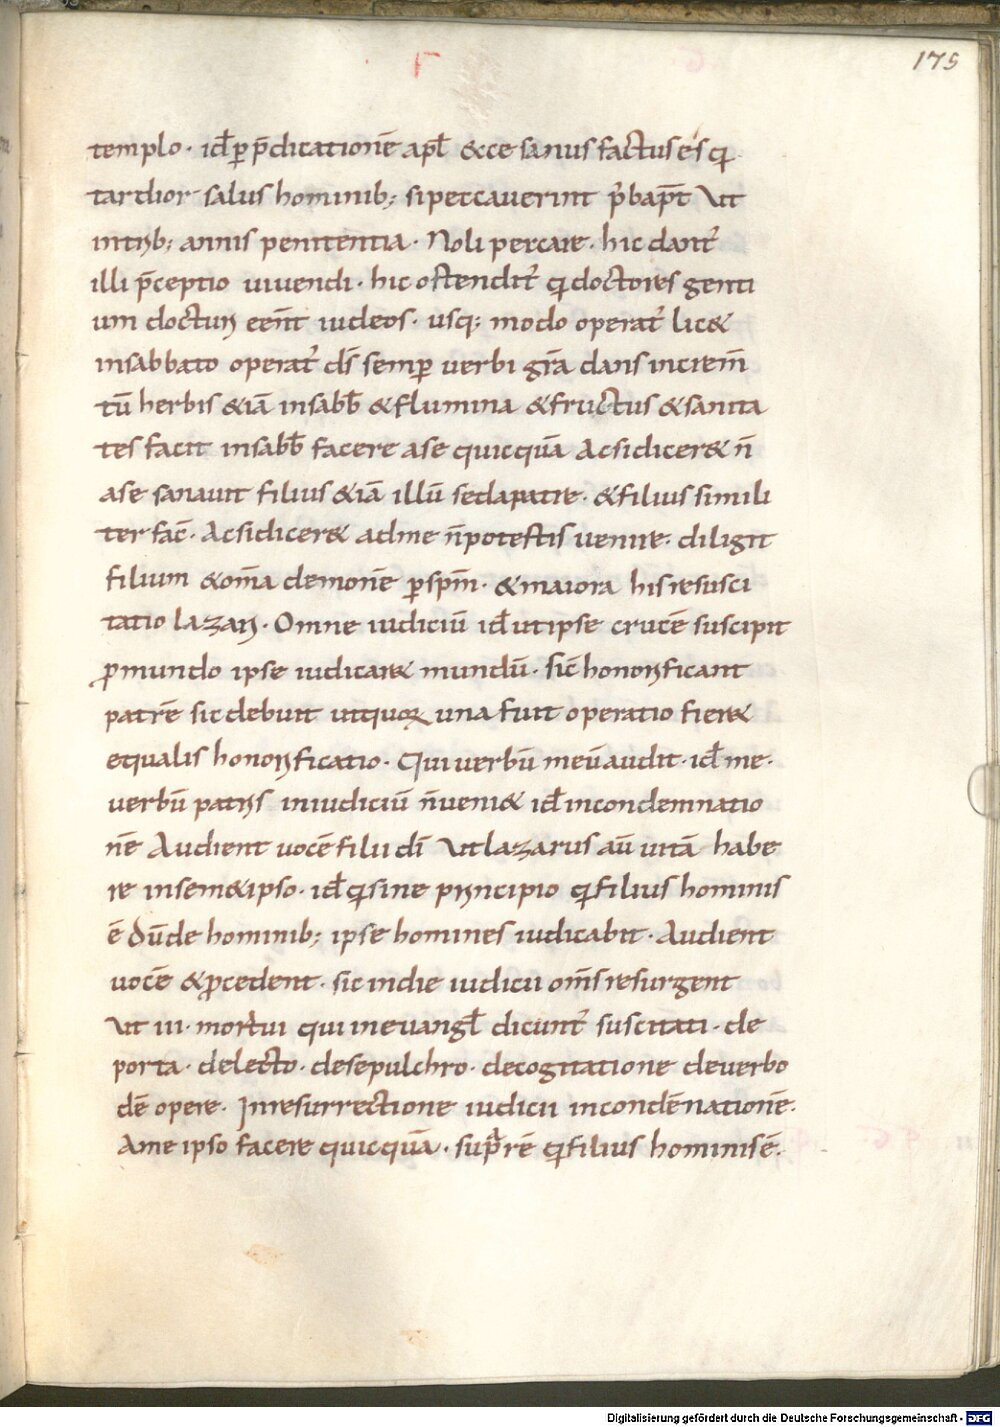 175
templo · id̅ ꝑ p̅dicationē apl̅ &cce sanus factus es q
tardior salus hominib; si peccauerint p̅ bapt̅ Ut
in trib; annis penitentia · Noli peccare · hic dant̅
illi p̅ceptio uiuendi · hic ostendit̅ q doctores genti
um docturi eēnt iudeos · usq; modo operat̅ lic&
in sabbato operat̅ ds̅ semꝑ uerbi gr̅a dans increm̅
tū herbis &iā in sabb̅ & flumina & fructus & sanita
tes facit in sabb̅ facere a se quicquā Ac si dicer& n̅
a se sanauit filius &iā illū sed a patre · & filius simili
ter fac̅ · Ac si dicer& ad me n̅ potestis uenire · diligit
filium & om̅a demonē ꝑ sp̅m · & maiora his resusci
tatio lazari · Omne iudiciū id̅ ut ipse crucē suscipit
ꝓ mundo ipse iudicar& mundū · sic̅ honorificant
patrē sic debuit ut quoꝝ una fuit operatio fier&
equalis honorificatio · Qui uerbū meū audit · id̅ me ·
uerbū patris in iudiciū n̅ ueni& id̅ in condemnatio
nē Audient uocē filii di̅ Ut lazarus aū uitā habe
re in sem&ipso · id̅ q sine principio q filius hominis
ē dūde hominib; ipse homines iudicabit · Audient
uocē & ꝓcedent · sic in die iudicii om̅s resurgent
Ut iii · mortui qui in euangl̅ dicunt̅ suscitati · de
porta · de lecto · de sepulchro · de cogitatione de uerbo
dē opere · In resurrectione iudicii in condēnationē ·
A me ipso facere quicquā · sup̅ rē q filius hominis ē ·
Digitalisierung gefördert durch die Deutsche Forschungsgemeinschaft - DFG